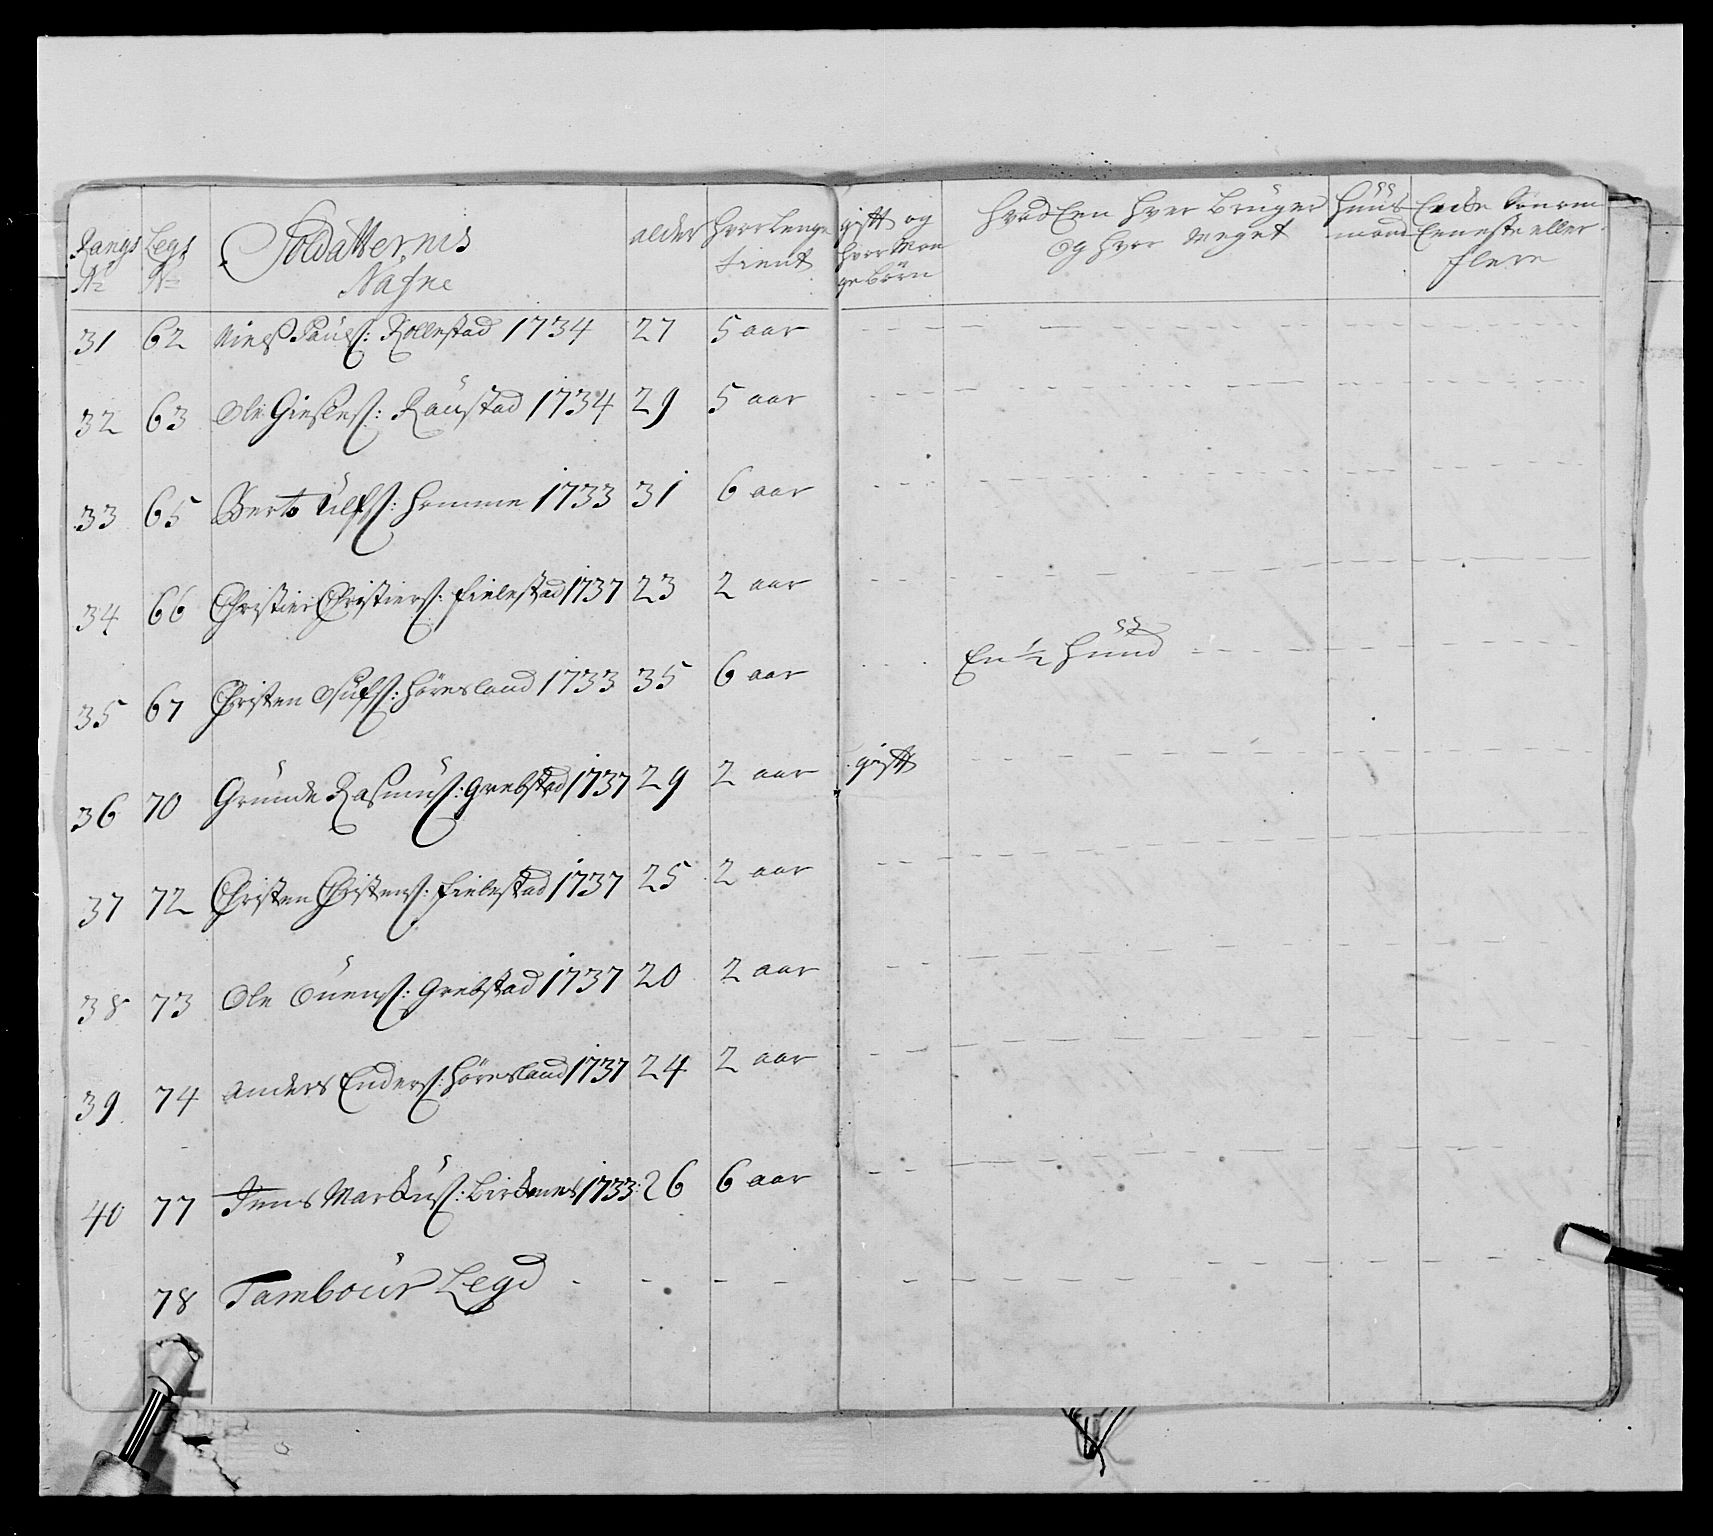 Rangs No Legs No Soldatternis Nafne alder hvor lenge tient gift og hvor Man ge börn hvad Een hver bruger og hvor meget huus mand Encke Sönnen Eeneste eller flere
31 62 Niels Pauels: Rollestad 1734 27 5 aar
32 63 Ole Gieskes: Raustad 1734 29 5 aar
33 65 Berto Ulfs: homme 1733 31 6 aar
34 66 Christier Christiers: fielestad 1737 23 2 aar
35 67 Christen Osufs: höresland 1733 35 6 aar En ½ huud
36 70 Gunde Rasmus: Grebstad 1737 29 2 aar gift
37 72 Christen Christens: fielestad 1737 25 2 aar
38 73 Ole Ouens: Grebstad 1737 20 2 aar
39 74 Anders Enders: höresland 1737 24 2 aar
40 77 Jens Markus: Birkenes 1733 26 6 aar
78 Tambour Legd